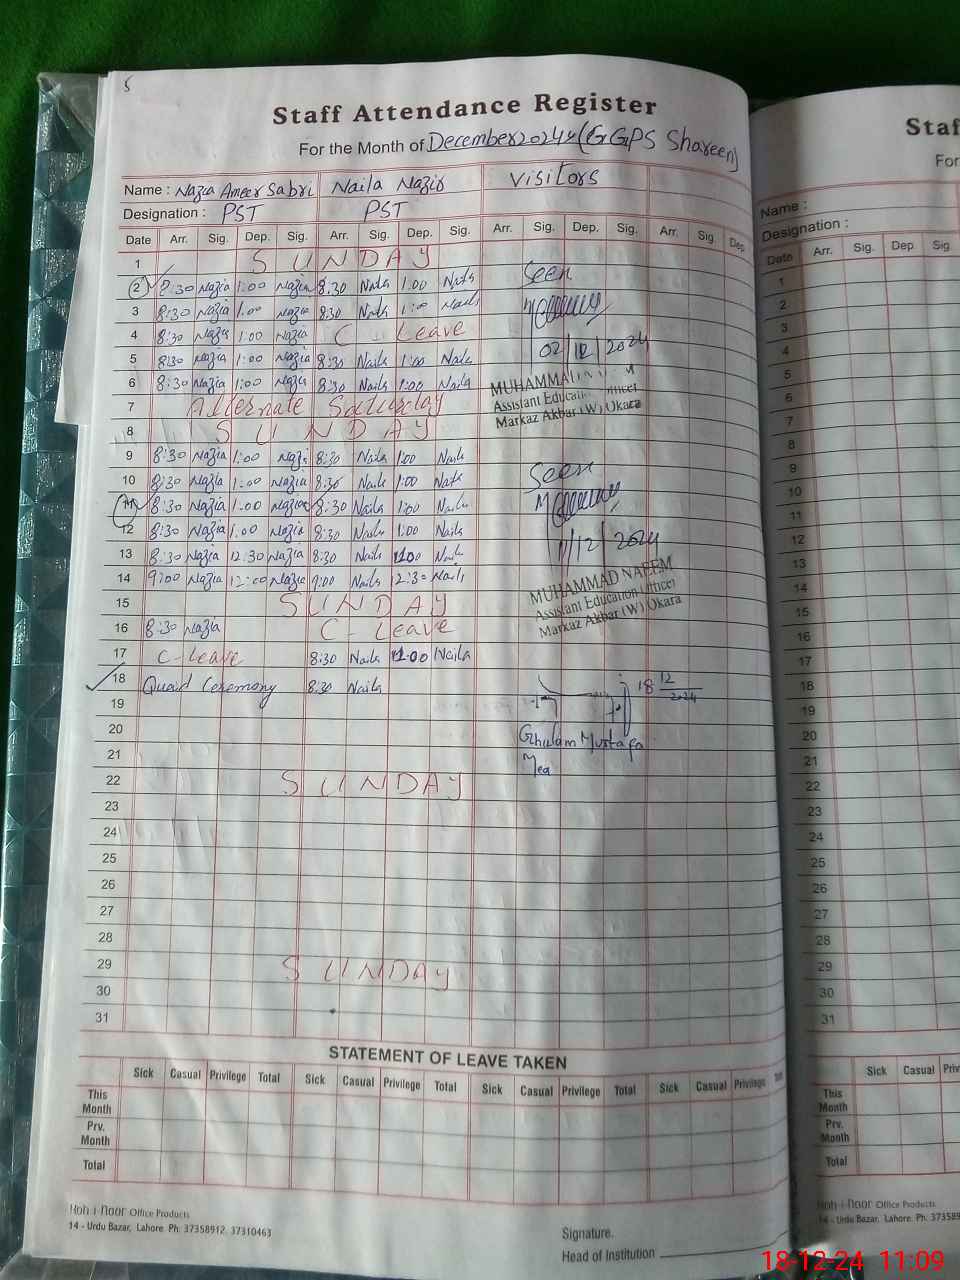 5
Staff Attendance Register
For the Month of December 2024 (GGPS Shareen)
Name : Nazia Ameer Sabri Naila Nazir Visitors
Designation : PST PST
Date Arr. Sig. Dep. Sig. Arr. Sig. Dep. Sig. Arr. Sig. Dep. Sig. Arr. Sig. Dep
1 SUNDAY
2 8:30 Nazia 1:00 Nazia 8:30 Naila 1:00 Naila Seen
3 8:30 Nazia 1:00 Nazia 8:30 Naila 1:00 Naila
4 8:30 Nazia 1:00 Nazia C Leave
02/12/2024
5 8:30 Nazia 1:00 Nazia 8:30 Naila 1:00 Naila
6 8:30 Nazia 1:00 Nazia 8:30 Naila 1:00 Naila
MUHAMMAD
Assistant Education Officer
Markaz Akbar (W) Okara
7 Alternate Saturday
8 SUNDAY
9 8:30 Nazia 1:00 Nazia 8:30 Naila 1:00 Naila
10 8:30 Nazia 1:00 Nazia 8:30 Naila 1:00 Naila Seen
11 8:30 Nazia 1:00 Nazia 8:30 Naila 1:00 Naila
12 8:30 Nazia 1:00 Nazia 8:30 Naila 1:00 Naila
11/12/2024
13 8:30 Nazia 12:30 Nazia 8:30 Naila Naila
14 9:00 Nazia 12:00 Nazia 9:00 Naila 2:30 Naila
MUHAMMAD NAEEM
Assistant Education Officer
Markaz Akbar (W) Okara
15 SUNDAY
16 8:30 Nazia C - Leave
17 C - Leave 8:30 Naila Naila
18 Quaid Ceremony 8:30 Naila 18 12 2024
19
20 Ghulam Mustafa
21 Mea
22 SUNDAY
23
24
25
26
27
28
29 SUNDAY
30
31
STATEMENT OF LEAVE TAKEN
Sick Casual Privilege Total Sick Casual Privilege Total Sick Casual Privilege Total Sick Casual Privilege
This Month
Prv. Month
Total
Koh-i-noor Office Products
14 - Urdu Bazar, Lahore. Ph: 37358912, 37310463
Signature.
Head of Institution
Staf
For
Name :
Designation :
Date Arr. Sig. Dep Sig.
1
2
3
4
5
6
7
8
9
10
11
12
13
14
15
16
17
18
19
20
21
22
23
24
25
26
27
28
29
30
31
Sick Casual Priv
This Month
Prv. Month
Total
Koh-i-noor Office Products
14 - Urdu Bazar, Lahore. Ph: 37358
18-12-24 11:09